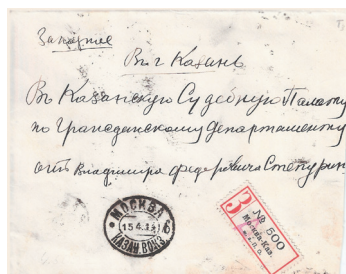 Заказное
В г Казань
Въ Казанскую Судебную Палату
по Гражданскому Департаменту
отъ Владимира Федоровича
МОСКВА
15 4
КАЗАН ВОКЗ.
З
№ 500
Москва-Каз.